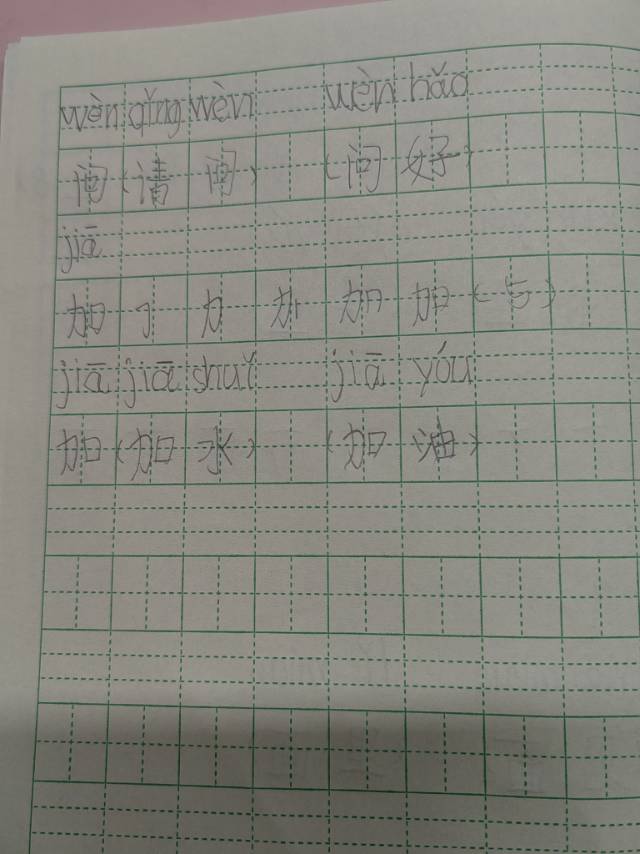 wèn qǐng wèn wèn hǎo
问(请问) (问好)
jiā
加 ㇆ 力 加 加 加(5)
jiā jiā shuǐ jiā yóu
加(加水) (加油)